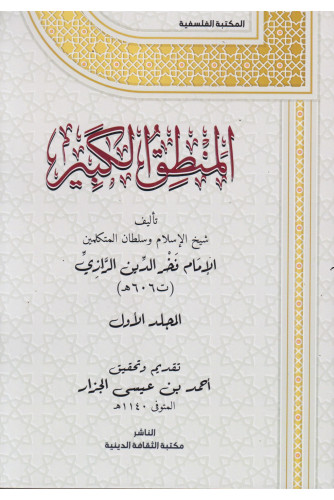 المكتبة الفلسفية
المنطق الكبير
تأليف
شيخ الإسلام وسلطان المتكلمين
الإمام فخر الدين الرازي
(ت ٦٠٦ هـ)
المجلد الأول
تقديم وتحقيق
أحمد بن عيسى الجزار
المتوفى ١١٤٠ هـ
الناشر
مكتبة الثقافة الدينية